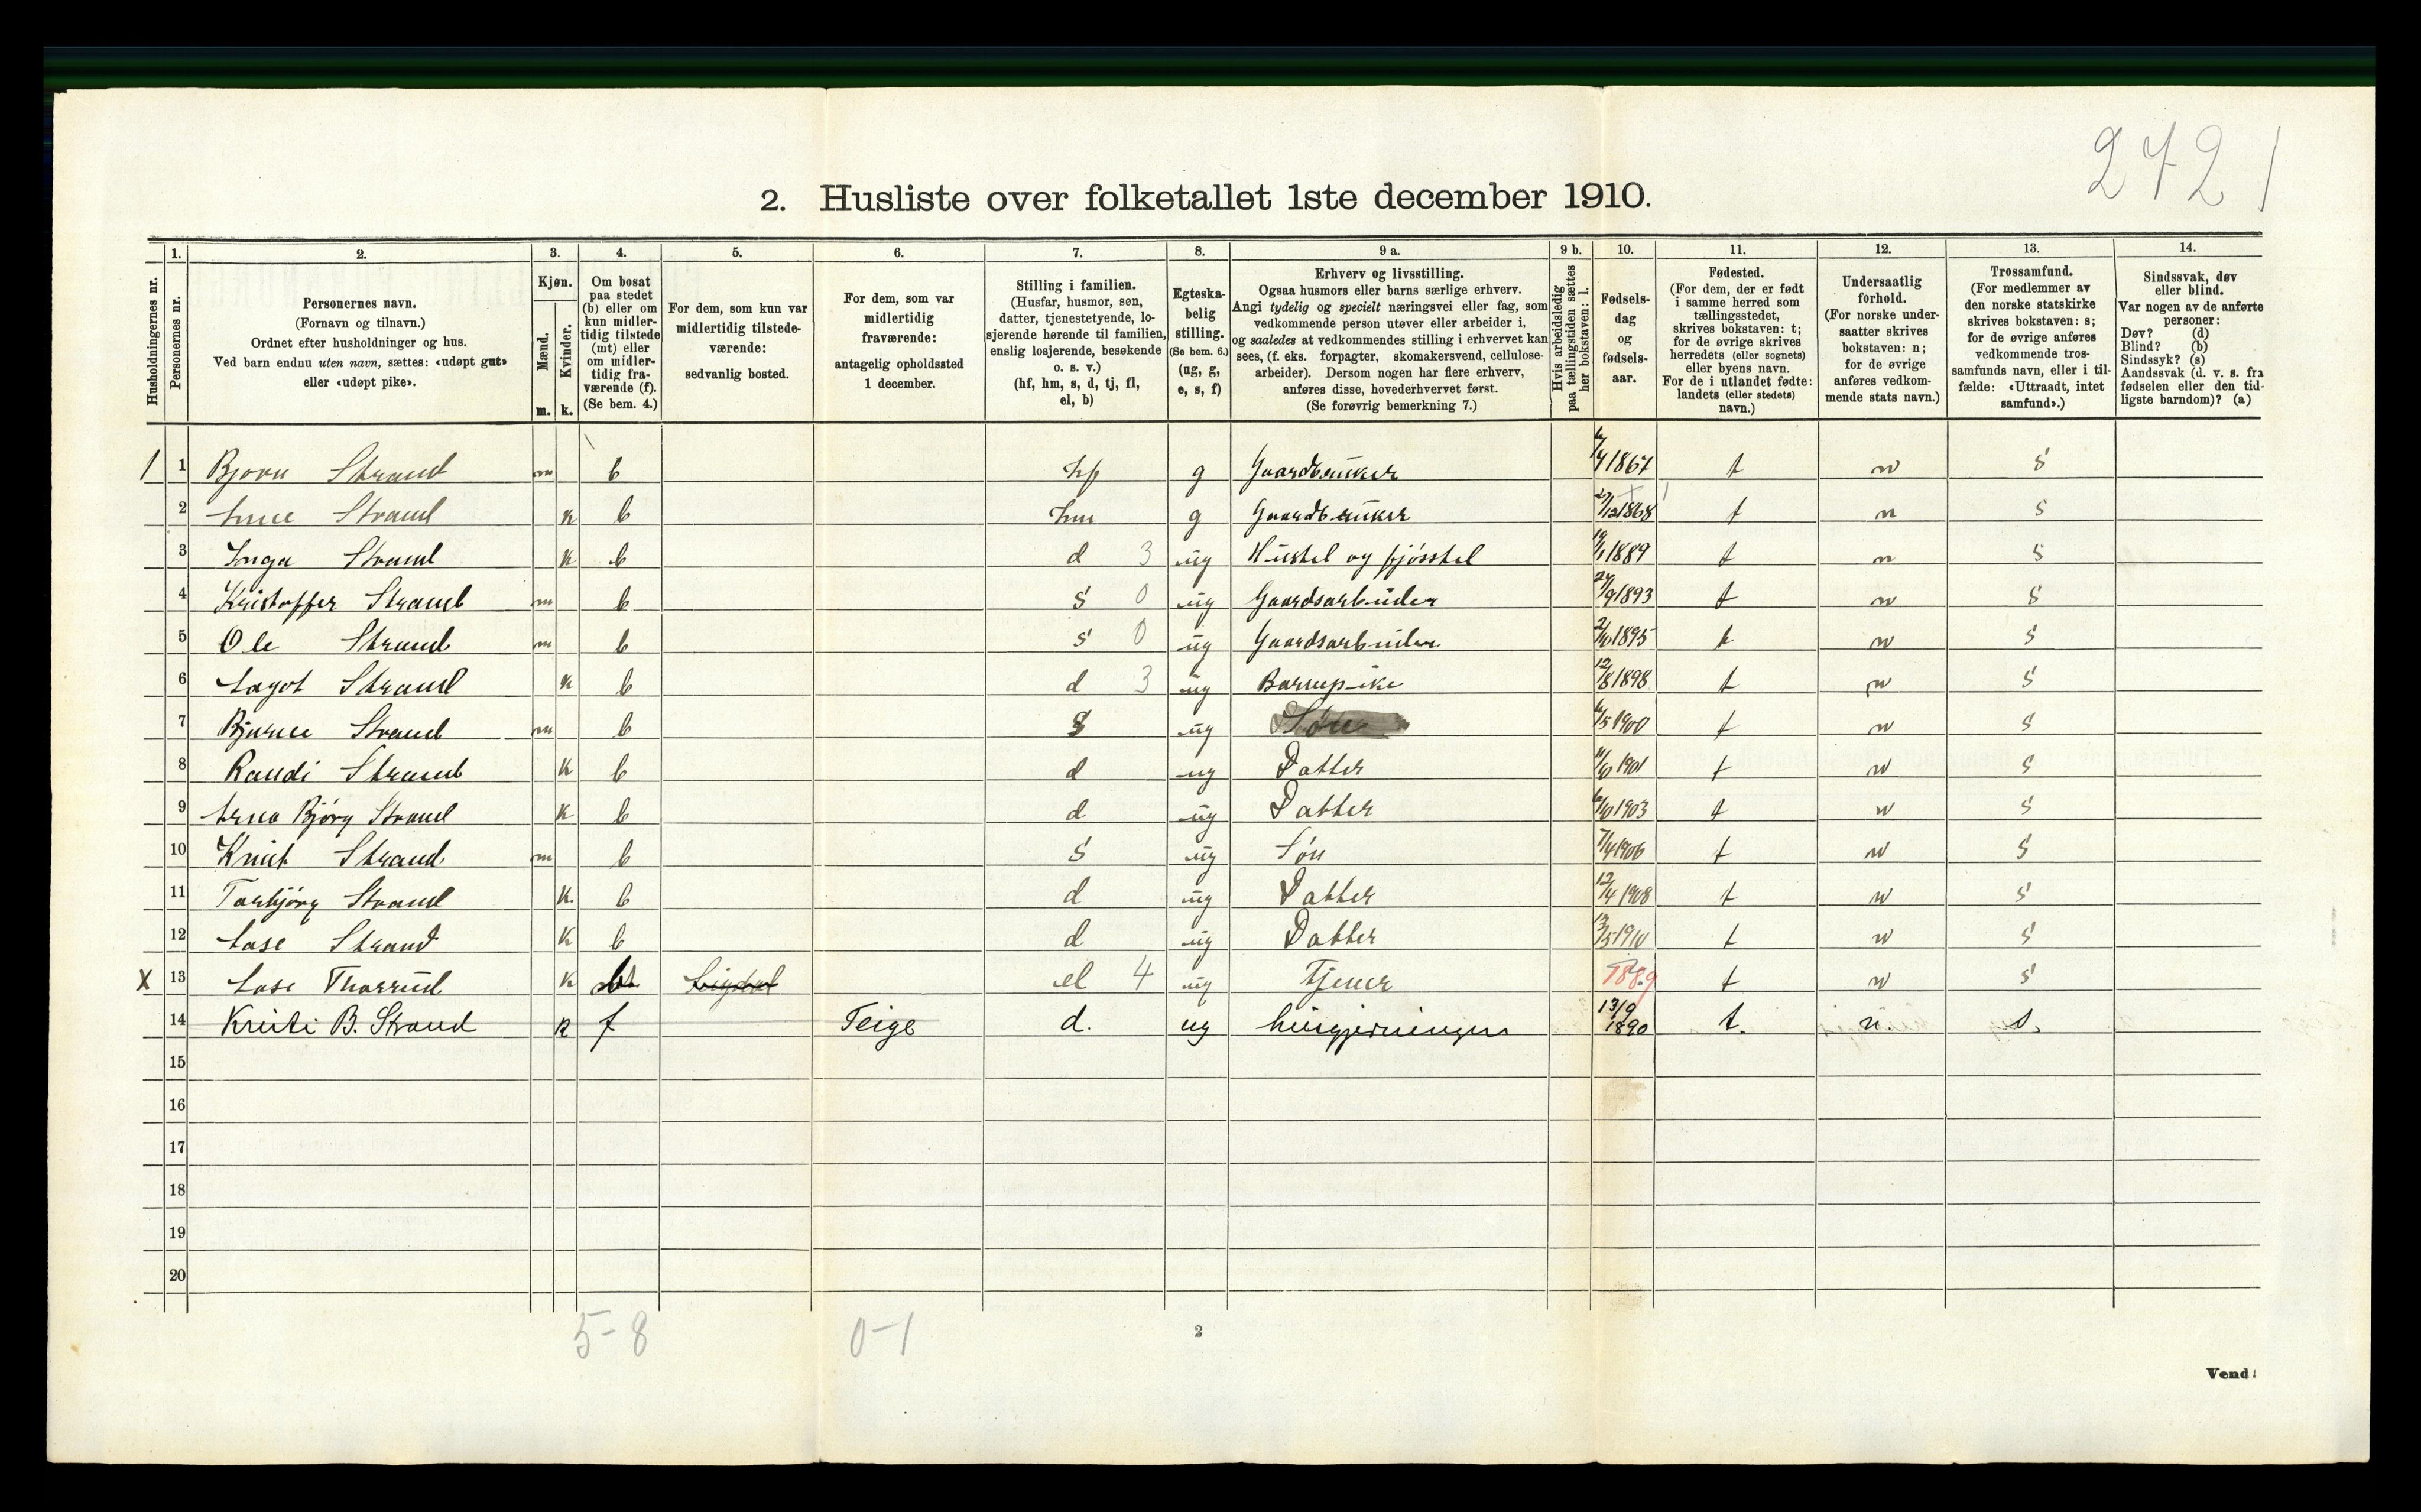 2421
2. Husliste over folketallet 1ste december 1910.
Husholdningernes nr.
1. Personernes nr.
2. Personernes navn. (Fornavn og tilnavn.) Ordnet efter husholdninger og hus. Ved barn endnu uten navn, sættes: «udøpt gut» eller «udøpt pike».
3. Kjøn. Mænd. m. Kvinder. k.
4. Om bosat paa stedet (b) eller om kun midlertidig tilstede (mt) eller om midlertidig fraværende (f). (Se bem. 4.)
5. For dem, som kun var midlertidig tilstedeværende: sedvanlig bosted.
6. For dem, som var midlertidig fraværende: antagelig opholdssted 1 december.
7. Stilling i familien. (Husfar, husmor, søn, datter, tjenestetyende, losjerende hørende til familien, enslig losjerende, besøkende o. s. v.) (hf, hm, s, d, tj, fl, el, b)
8. Egteskabelig stilling. (Se bem. 6.) (ug, g, e, s, f)
9 a. Erhverv og livsstilling. Ogsaa husmors eller barns særlige erhverv. Angi tydelig og specielt næringsvei eller fag, som vedkommende person utøver eller arbeider i, og saaledes at vedkommendes stilling i erhvervet kan sees, (f. eks. forpagter, skomakersvend, cellulosearbeider). Dersom nogen har flere erhverv, anføres disse, hovederhvervet først. (Se forøvrig bemerkning 7.)
9 b. Hvis arbeidsledig paa tællingstiden sættes her bokstaven: l.
10. Fødselsdag og fødselsaar.
11. Fødested. (For dem, der er født i samme herred som tællingsstedet, skrives bokstaven: t; for de øvrige skrives herredets (eller sognets) eller byens navn. For de i utlandet fødte: landets (eller stedets) navn.)
12. Undersaatlig forhold. (For norske undersaatter skrives bokstaven: n; for de øvrige anføres vedkommende stats navn.)
13. Trossamfund. (For medlemmer av den norske statskirke skrives bokstaven: s; for de øvrige anføres vedkommende trossamfunds navn, eller i tilfælde: «Uttraadt, intet samfund».)
14. Sindssvak, døv eller blind. Var nogen av de anførte personer: Døv? (d) Blind? (b) Sindssyk? (s) Aandssvak (d. v. s. fra fødselen eller den tidligste barndom)? (a)
1 1 Bjørn Strand m b hf g Gaardbruker 1867 t n s
2 Strand k b hm g Gaardbruker 1868 t n s
3 Inga Strand k b d 3 ug Husstel og fjøsstel 1889 t n s
4 Kristoffer Strand m b s 0 ug Gaardsarbeider 1893 t n s
5 Ole Strand m b s 0 ug Gaardsarbeider 1895 t n s
6 Aagot Strand k b d 3 ug Barnepike 12/8 1898 t n s
7 Bjarne Strand m b s ug Søn 1900 t n s
8 Randi Strand k b d ug Datter 1901 t n s
9 Anna Bjørg Strand k b d ug Datter 1903 t n s
10 Knut Strand m b s ug Søn 7/4 1906 t n s
11 Torbjørg Strand k b d ug Datter 12/4 1908 t n s
12 Aase Strand k b d ug Datter 13/5 1910 t n s
X 13 Aase Thorrud k b Sigdal el 4 ug Tjener 1889 t n s
14 Kristi B. Strand k f Teige d. ug husgjerninger 13/9 1890 t. n. s.
15
16
17
18
19
20
5-8 0-1
2
Vend!